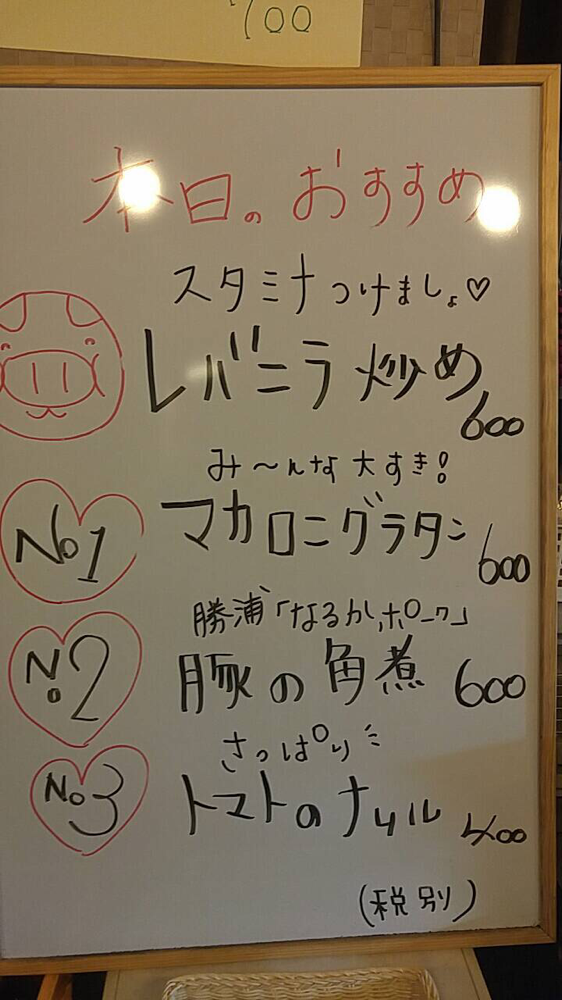 700
本日のおすすめ
スタミナつけましょ♡
レバニラ炒め 600
み〜んな大すき!
No1 マカロニグラタン 600
勝浦「なるかポーク」
No2 豚の角煮 600
さっぱり
No3 トマトのナムル 400
(税別)